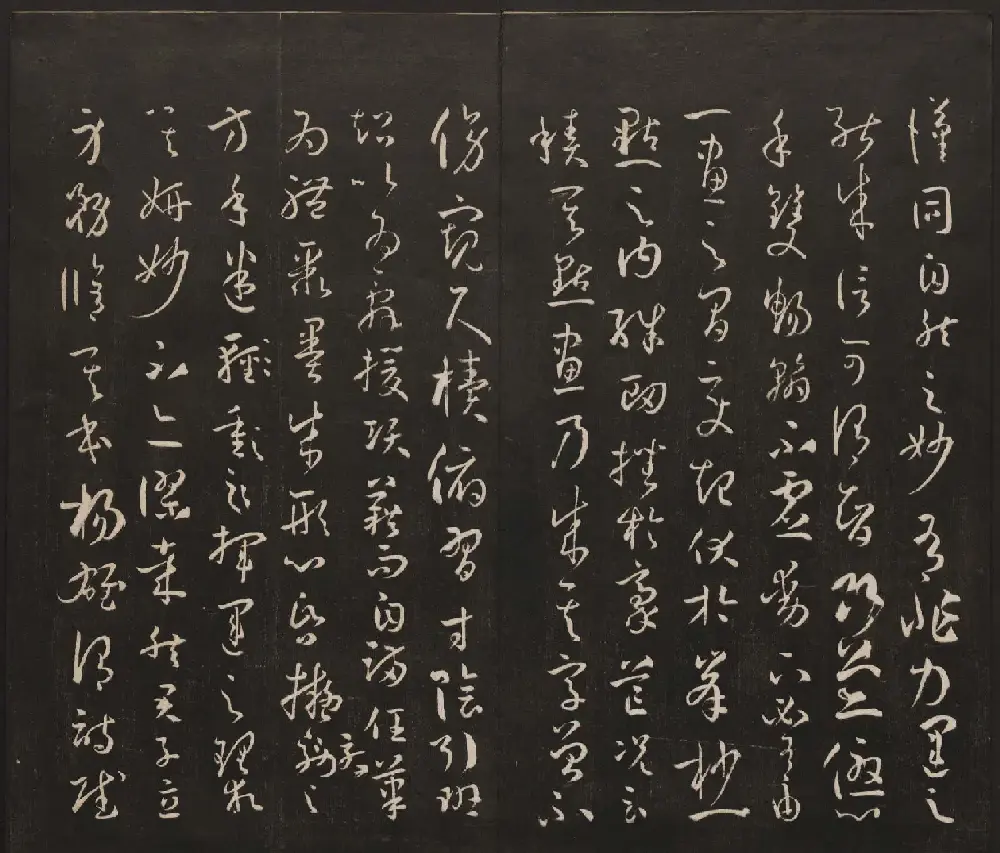 僅同自然之妙有非力運之
能成信可謂智巧兼優心
手雙暢翰不虛動下必有由
一畫之間變起伏於峯杪一
點之內殊衄挫於豪芒況云
積其點畫乃成其字曾不
傍窺尺牘俯習寸陰引班
超以為辭援項籍而自滿任筆
為體聚墨成形心昏擬效之
方手迷輕重之揮運之理求
其妍妙不亦謬哉然君子立
身務脩其本楊雄謂詩賦